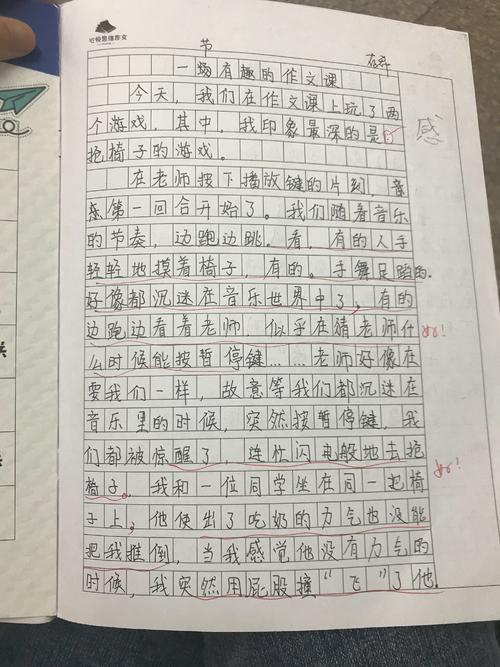 节
一场有趣的作文课
今天，我们在作文课上玩了两
个游戏，其中，我印象最深的是
抢椅子的游戏。
感
在老师按下播放键的片刻，意
态第一回合开始了。我们随着音乐
的节奏，边跑边跳。看，有的人手
轻轻地摸着椅子，有的。手舞足蹈的.
好像都沉迷在音乐世界中了，有的
边跑边看着老师，似乎在猜老师什
么时候能按暂停键……老师好像在
耍我们一样，故意等我们都沉迷在
音乐里的时候，突然按暂停键，我
们都被惊醒了，连忙闪电般地去抢
椅子。我和一位同学坐在同一把椅
子上，他使出了吃奶的力气也没能
把我推倒，当我感觉他没有力气的
时候，我突然用屁股撞“飞”了他.